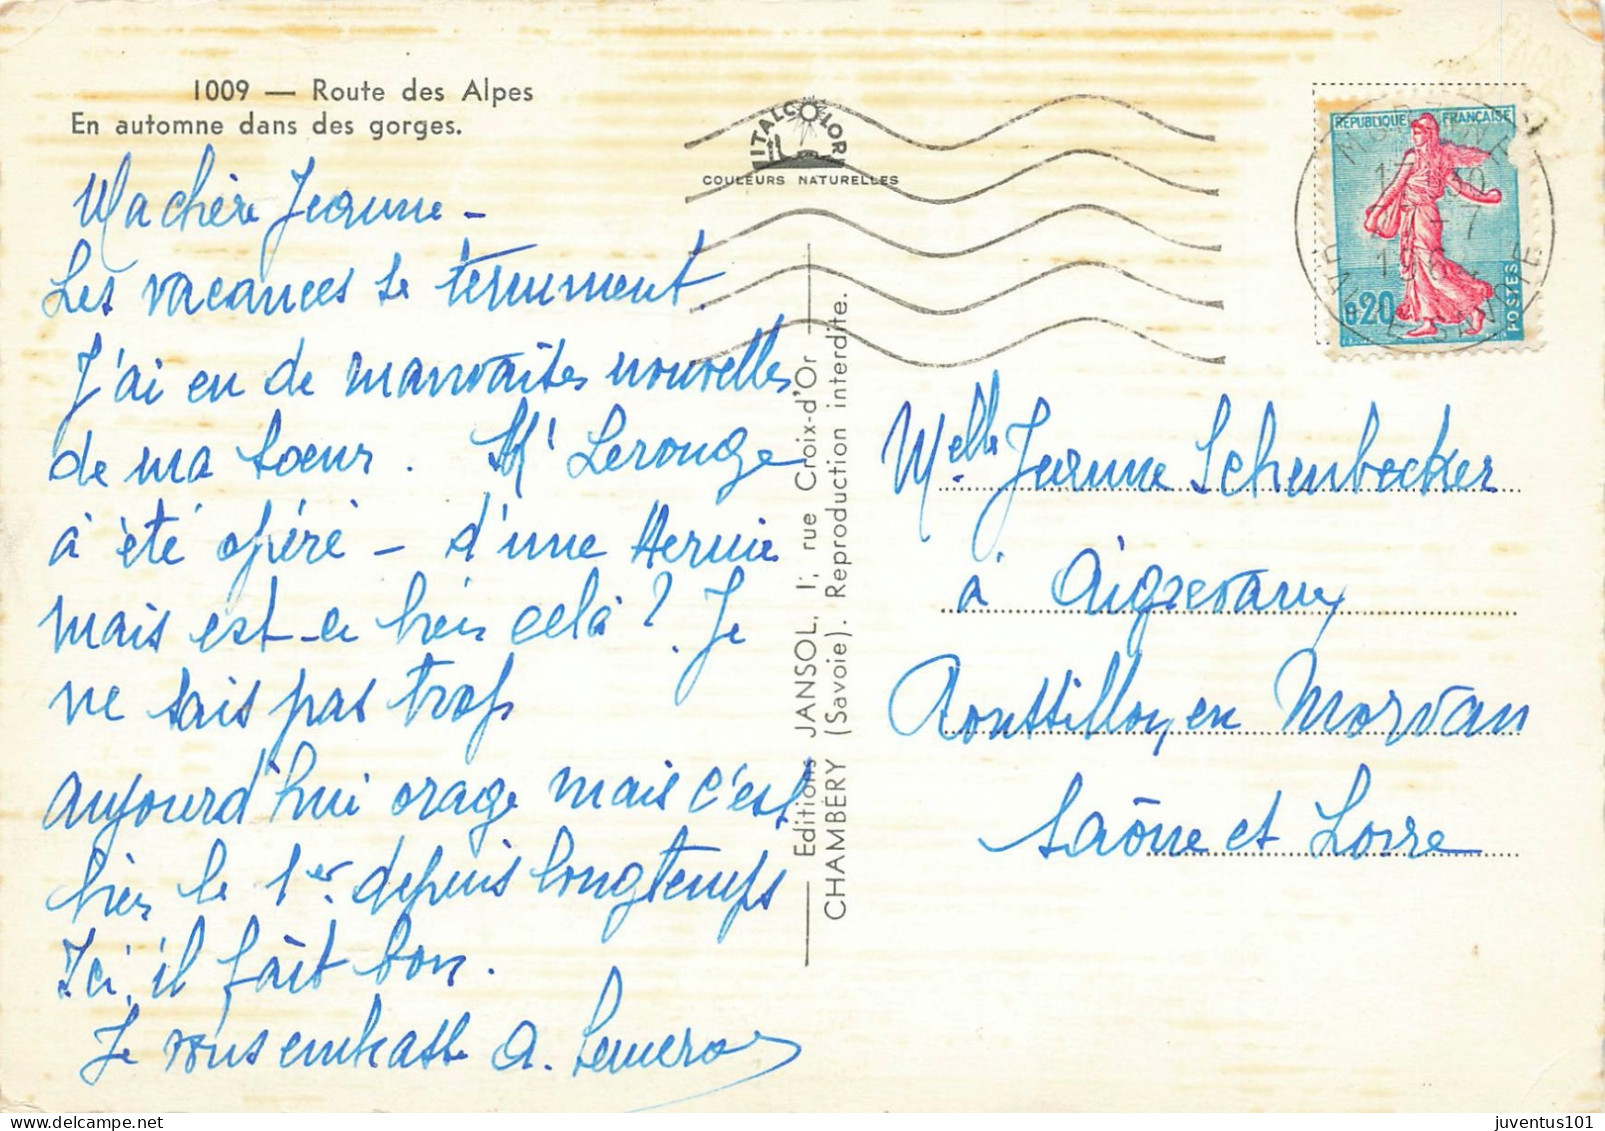 1009 — Route des Alpes
En automne dans des gorges.
Ma chère Jeanne -
Les vacances se terminent.
J'ai eu de mauvaises nouvelles
de ma soeur. Mr Lerouge
à été opéré - d'une Hernie
mais est-ce bien celà ? Je
ne sais pas trop
aujourd'hui orage mais c'est
bien le 1er depuis longtemps
Ici, il fait bon.
Je vous embrasse A.
VITALCOLOR
COULEURS NATURELLES
Editions JANSOL, 1, rue Croix-d'Or
CHAMBÉRY (Savoie). Reproduction interdite.
REPUBLIQUE FRANÇAISE
0,20
POSTES
Melle Jeanne Schenbecker
à Aigrevaux
Roussillon en Morvan
Saône et Loire
juventus101